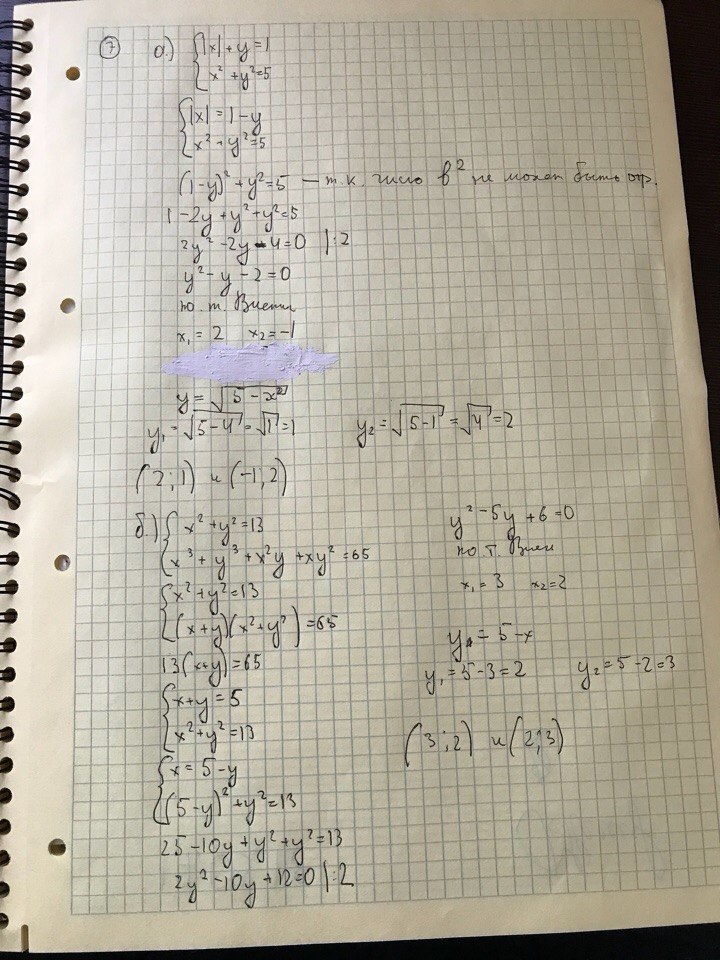 7 а.) { |x| + y = 1
x² + y² = 5
{ |x| = 1 - y
x² + y² = 5
(1-y)² + y² = 5 — т.к. число в² не может быть отр.
1 - 2y + y² + y² = 5
2y² - 2y - 4 = 0 |:2
y² - y - 2 = 0
по т. Виета
x₁ = 2 x₂ = -1
y = √(5 - x²)
y₁ = √(5-4) = √1 = 1 y₂ = √(5-1) = √4 = 2
(2;1) и (-1;2)
б.) { x² + y² = 13
x³ + y³ + x²y + xy² = 65
{ x² + y² = 13
(x+y)(x² + y²) = 65
13(x+y) = 65
{ x+y = 5
x² + y² = 13
{ x = 5 - y
(5-y)² + y² = 13
25 - 10y + y² + y² = 13
2y² - 10y + 12 = 0 |:2
y² - 5y + 6 = 0
по т. Виета
x₁ = 3 x₂ = 2
y = 5 - x
y₁ = 5-3 = 2 y₂ = 5-2 = 3
(3;2) и (2;3)